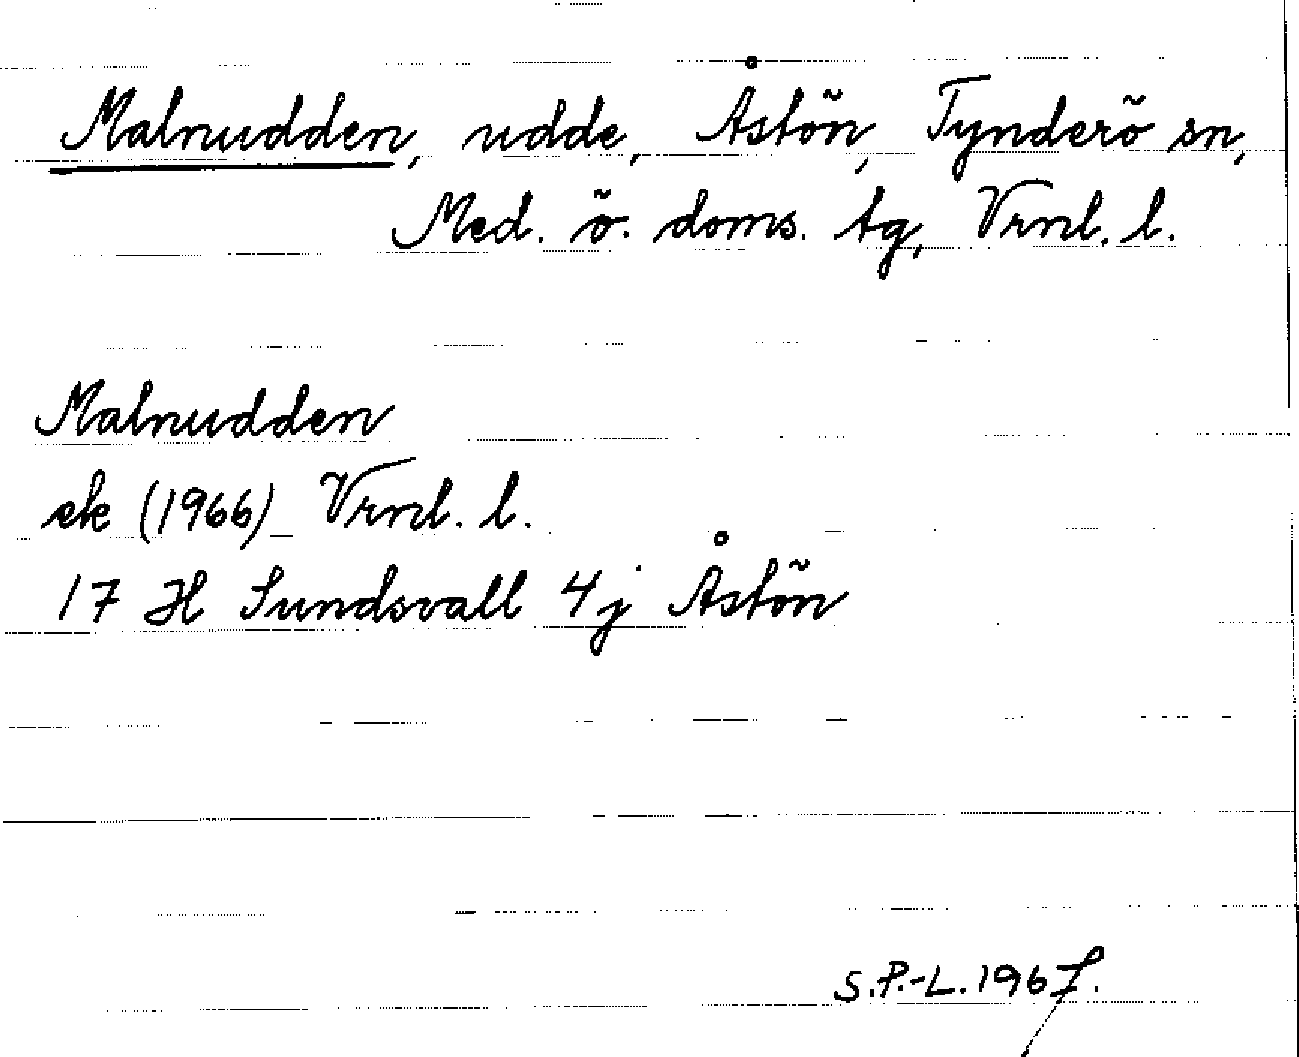 Malnudden, udde, Åstön, Tynderö sn,
Med. ö. doms. tg, Vrnl. l.
Malnudden
ek (1966) Vrnl. l.
17 H Sundsvall 4j Åstön
S.P.-L. 1967.